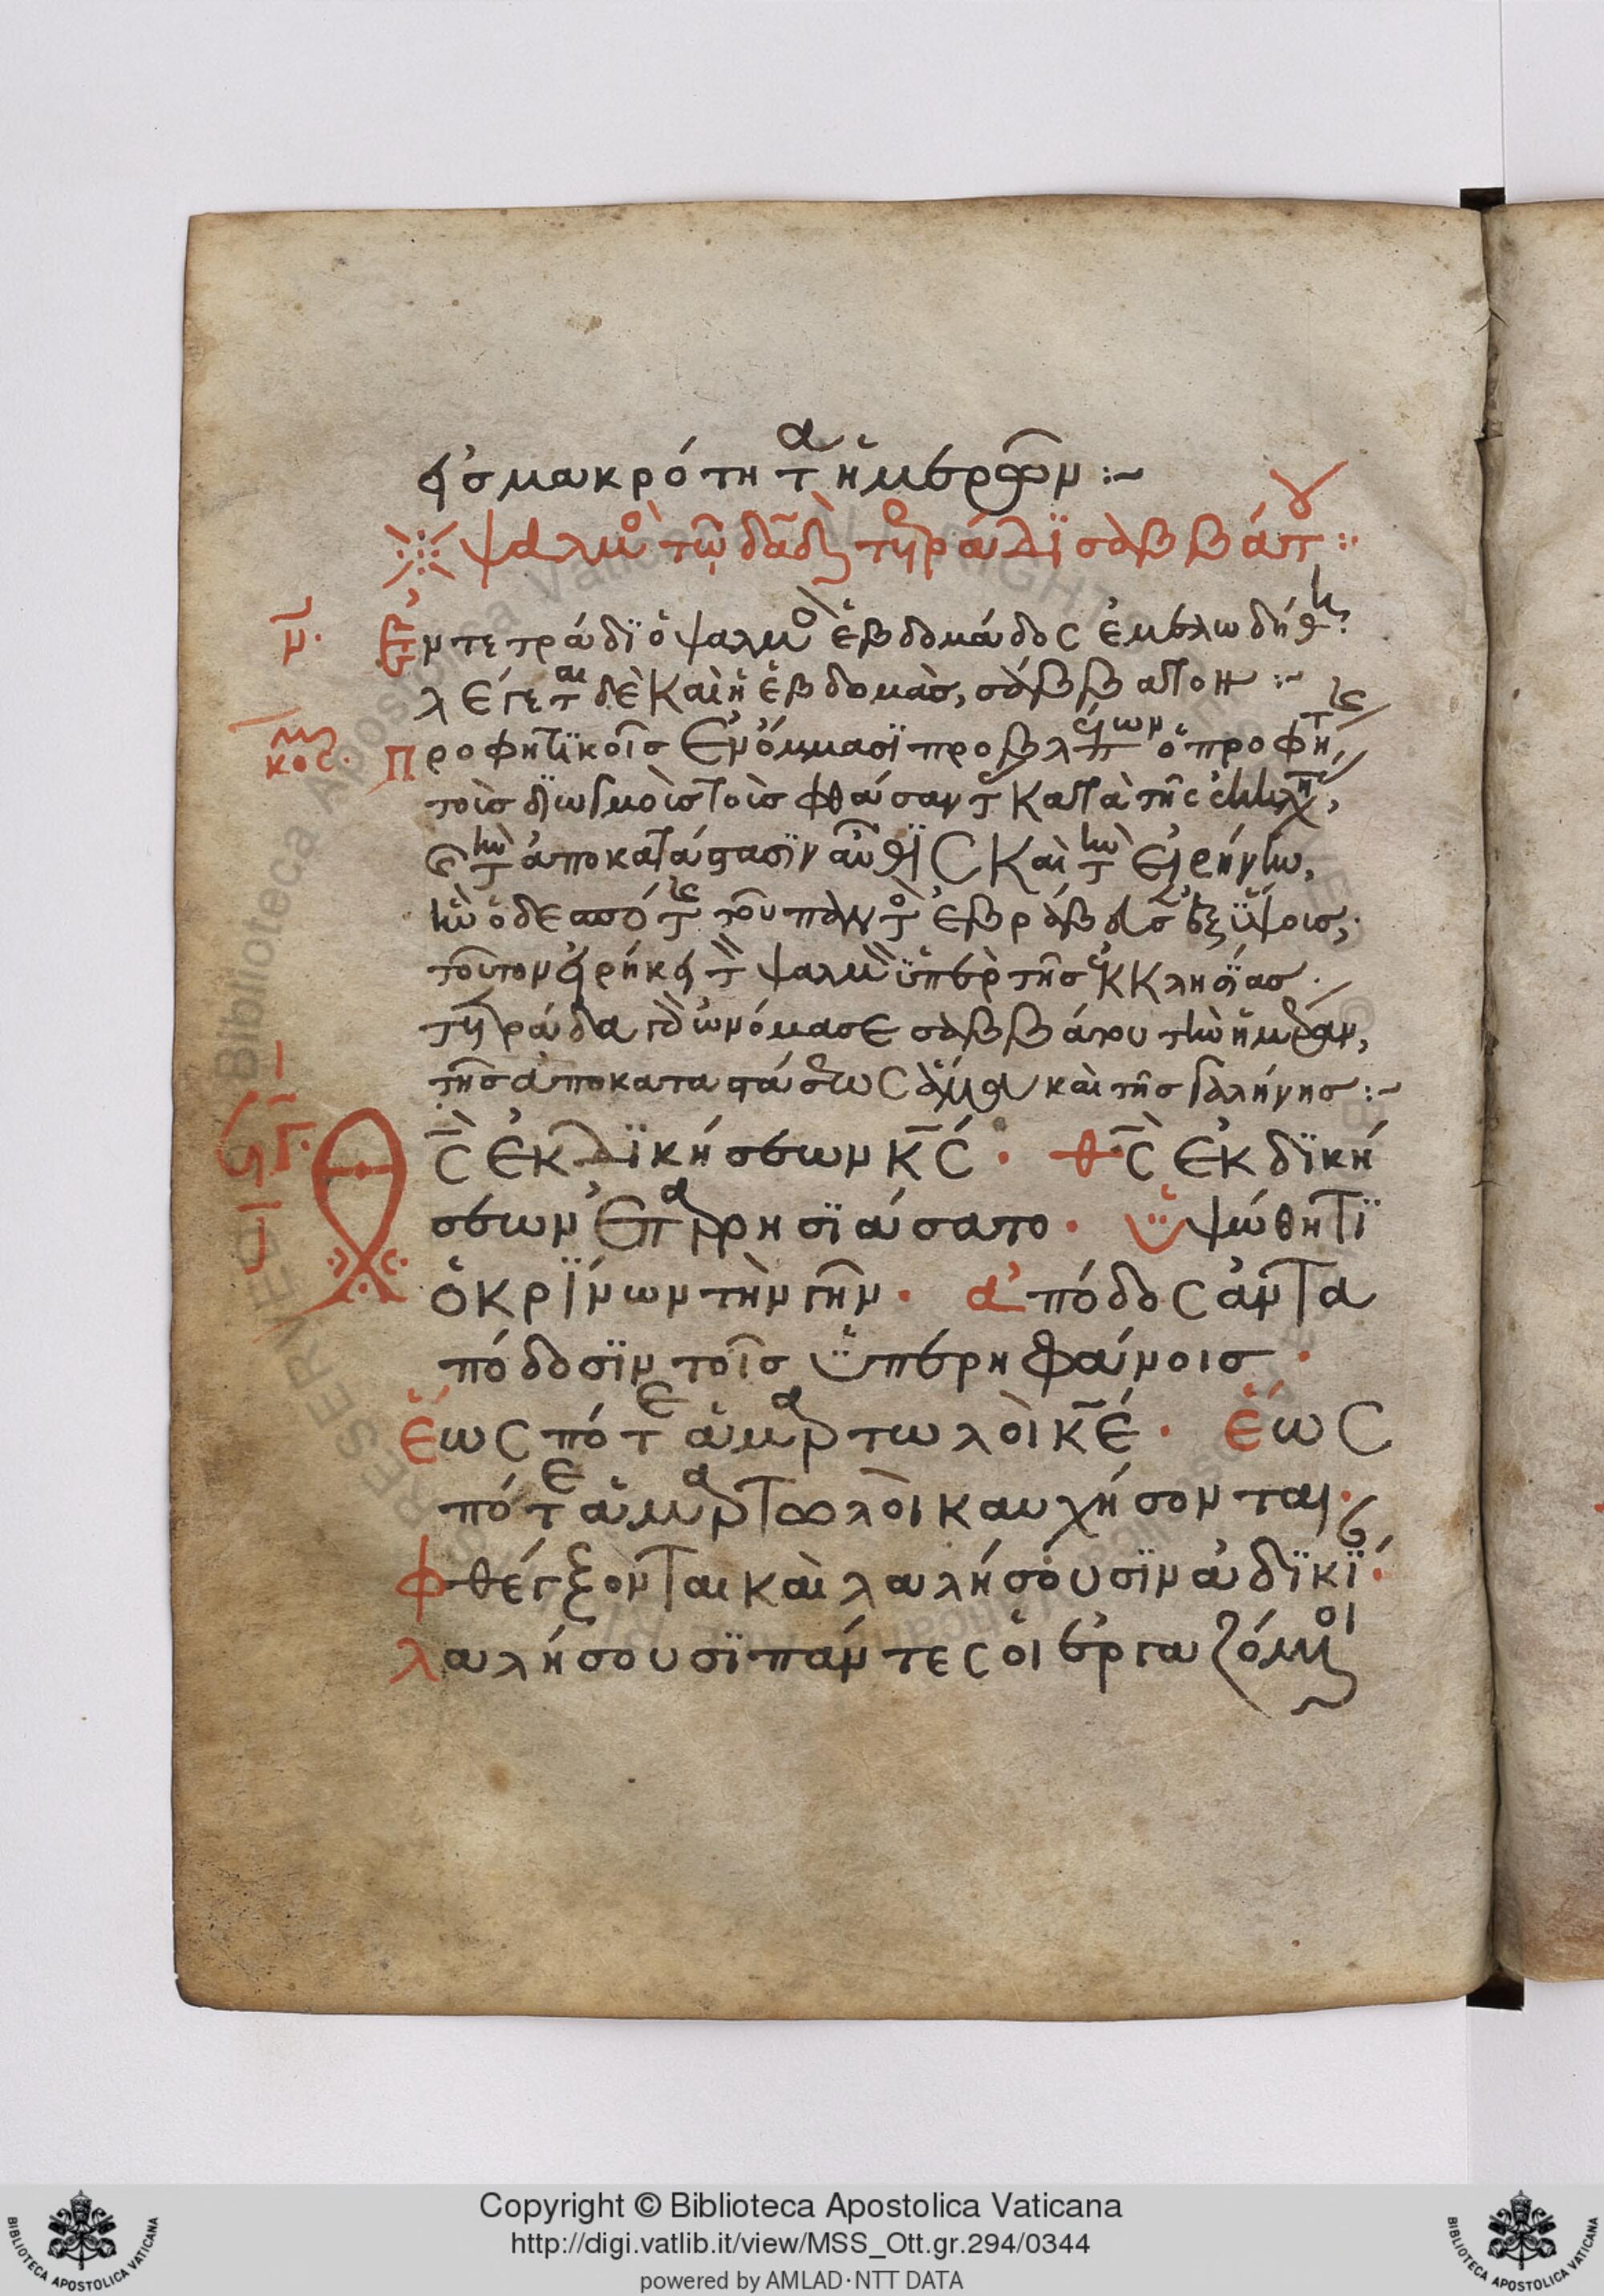 εἰς μακρότητα ἡμερῶν :~
ψαλμὸς τῷ δαδ τετράδι σαββάτου :
Ἐν τετράδι ὁ ψαλμὸς ἑβδομάδος ἐμελωδήθη
λέγεται δὲ καὶ ἡ ἑβδομὰς, σάββατον :~
Προφητικοῖς ἐν ὄμμασι προβλέπων ὁ προφήτης
τοὺς διωγμοὺς τοὺς φθάσαντας κατὰ τῆς
τὴν ἀποκατάστασιν αὖθις καὶ τὴν εἰρήνην,
ἣν ὁ δεσπότης τοῦ παντὸς ἐβράβευσεν ἐξ ὕψους,
τοῦτον εἴρηκε τὸν ψαλμὸν ὑπὲρ τῆς ἐκκλησίας.
τετράδα ὠνόμασε σαββάτου τὴν ἡμέραν,
τῆς ἀποκαταστάσεως ἅμα καὶ τῆς γαλήνης :~
Θς ἐκδικήσεων κς · θς ἐκδικη
σεων ἐπαρρησιάσατο · ὑψώθητι
ὁ κρίνων τὴν γῆν · ἀπόδος ἀντα
πόδοσιν τοῖς ὑπερηφάνοις ·
ἕως πότε ἁμαρτωλοὶ κε · ἕως
πότε ἁμαρτωλοὶ καυχήσονται ·
φθέγξονται καὶ λαλήσουσιν ἀδικί ·
λαλήσουσι πάντες οἱ ἐργαζόμενοι
Copyright © Biblioteca Apostolica Vaticana
http://digi.vatlib.it/view/MSS_Ott.gr.294/0344
powered by AMLAD·NTT DATA
BIBLIOTECA APOSTOLICA VATICANA
BIBLIOTECA APOSTOLICA VATICANA